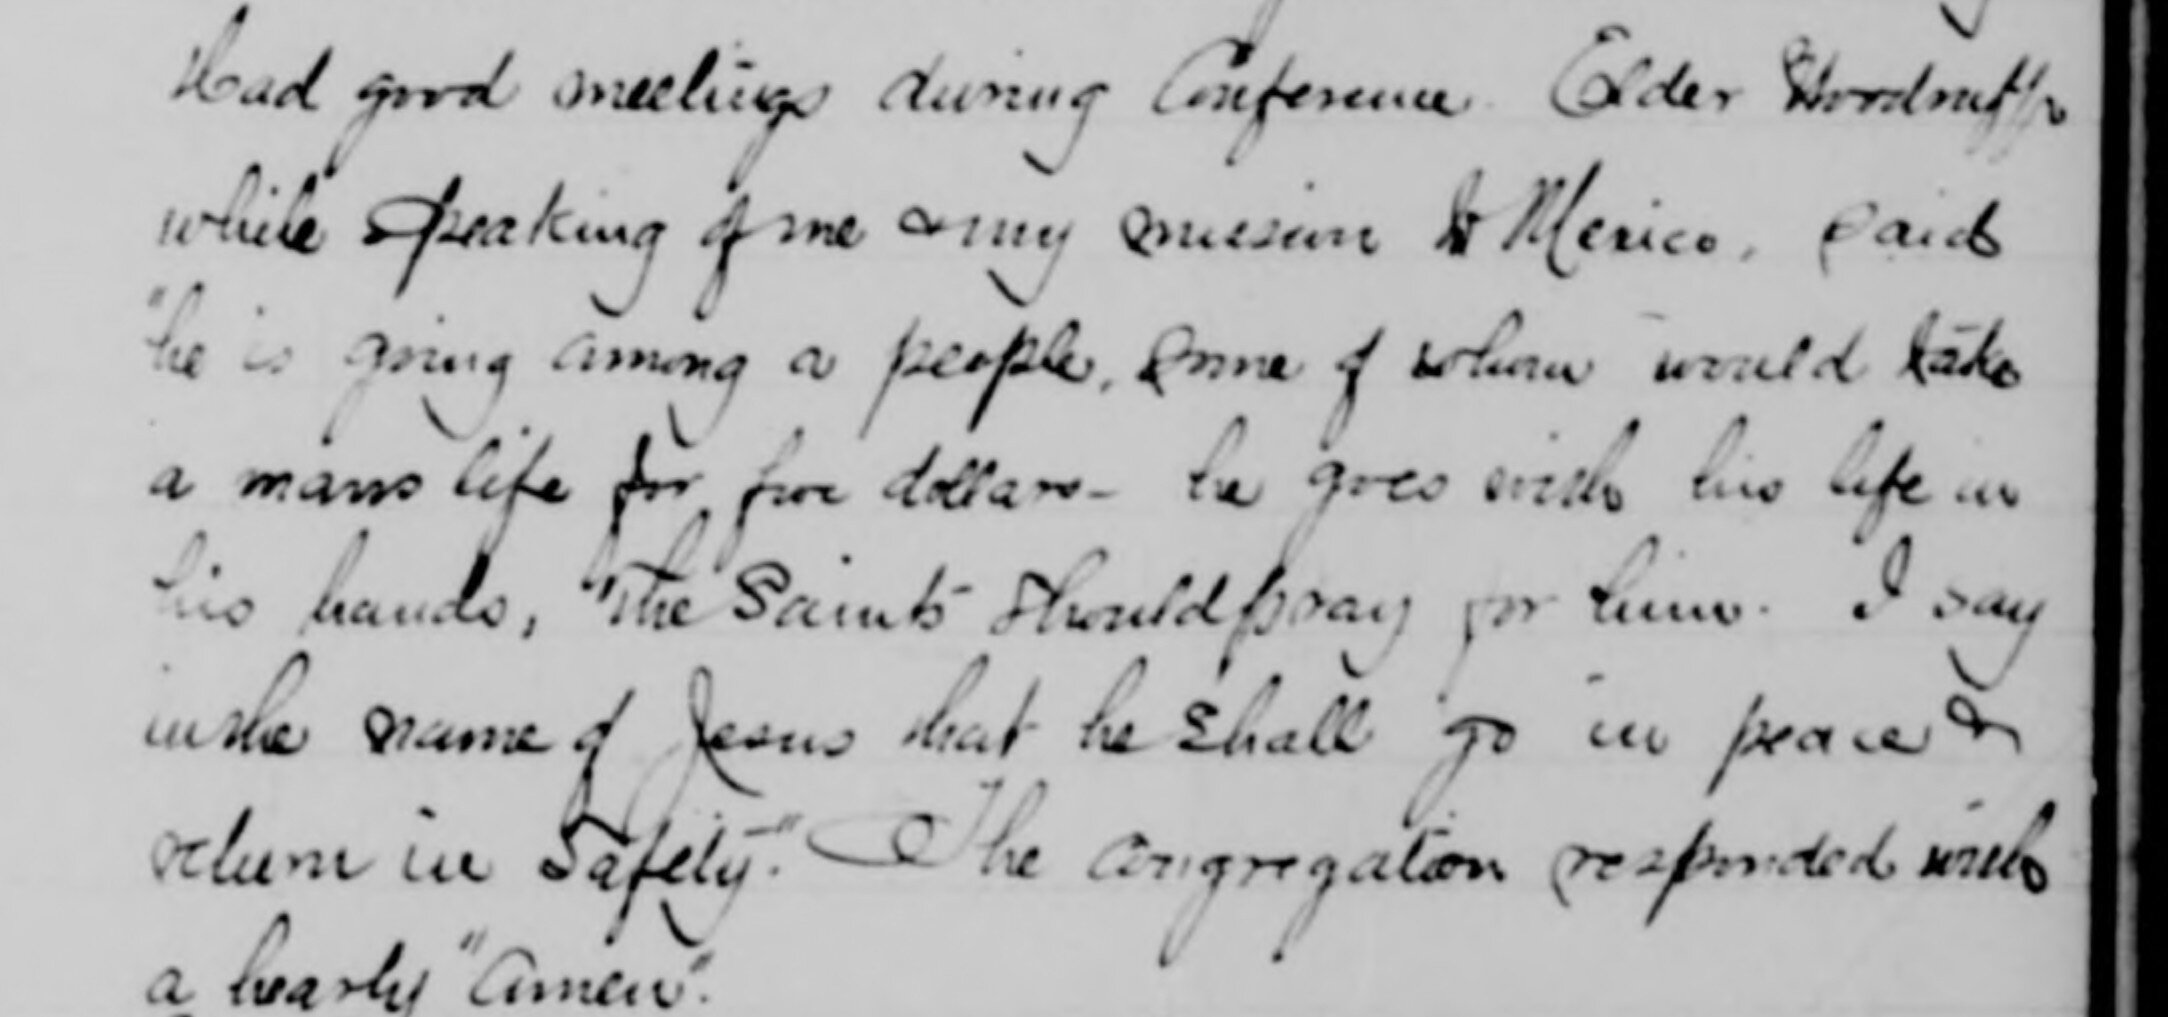 Had good meetings during Conference. Elder Woodruff
while speaking of me & my mission to Mexico, said
"he is going among a people, some of whom would take
a mans life for five dollars - he goes with his life in
his hands, "The Saints should pray for him. I say
in the name of Jesus that he shall go in peace &
return in Safety." The congregation responded with
a hearty "Amen".